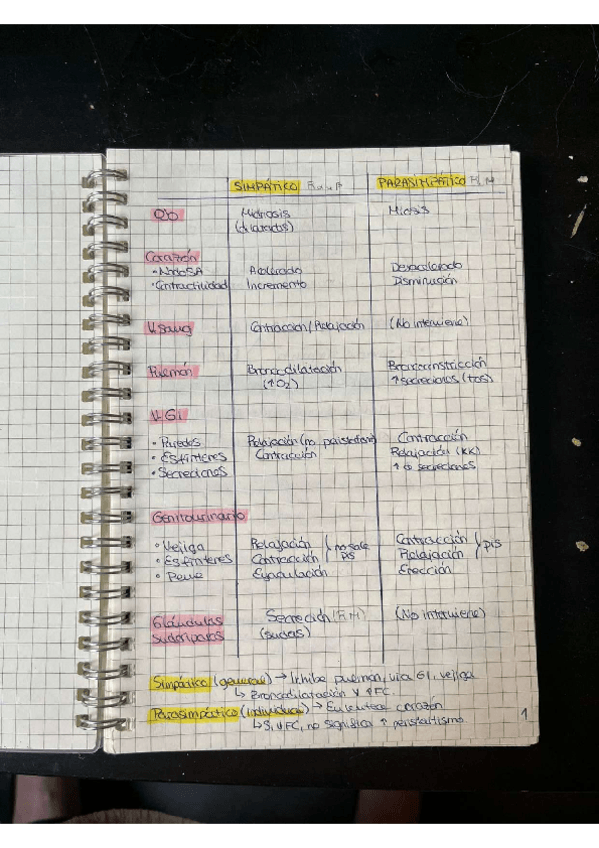 SIMPÁTICO R α y β PARASIMPÁTICO R M
Ojo Midriasis Miosis
(dilatados)
Corazón
• Nodo SA Acelerado Desacelerado
• Contractilidad Incremento Disminución
V. sang Contracción / Relajación (No interviene)
Pulmón Broncodilatación Broncoconstricción
(↑O2) ↑ secreciones (tos)
V. GI
• Paredes Relajación (no peristaltismo) Contracción
• Esfínteres Contracción Relajación (KK)
• Secreciones ↑ secreciones
Genitourinario
• Vejiga Relajación no sale Contracción
• Esfínteres Contracción pis Relajación pis
• Pene Eyaculación Erección
Glándulas Secreción (RM) (No interviene)
sudoríparas (sudas)
Simpático (general) → Inhibe pulmón, vía GI, vejiga
↳ Broncodilatación y ↑FC.
Parasimpático (individual) → corazón
↳ Si ↓FC, no significa ↑ peristaltismo.
1